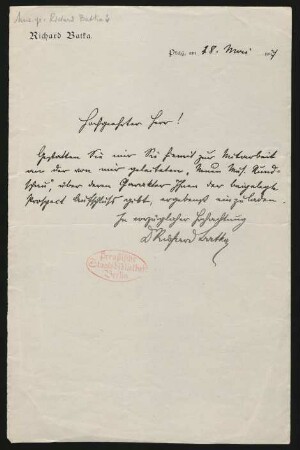 Richard Batka
Richard Batka.
Prag, am 28. Mai
Hochgeehrter Herr!
Gestatten Sie mir Sie hiemit zur Mitarbeit
an der von mir geleiteten „Neuen Mus. Rund-
schau“, über deren Charakter Ihnen der beigelegte
Prospect Aufschluss gibt, ergebenst einzuladen.
In vorzüglicher Hochachtung
Dr Richard Batka
Preußische
Staatsbibliothek
Berlin